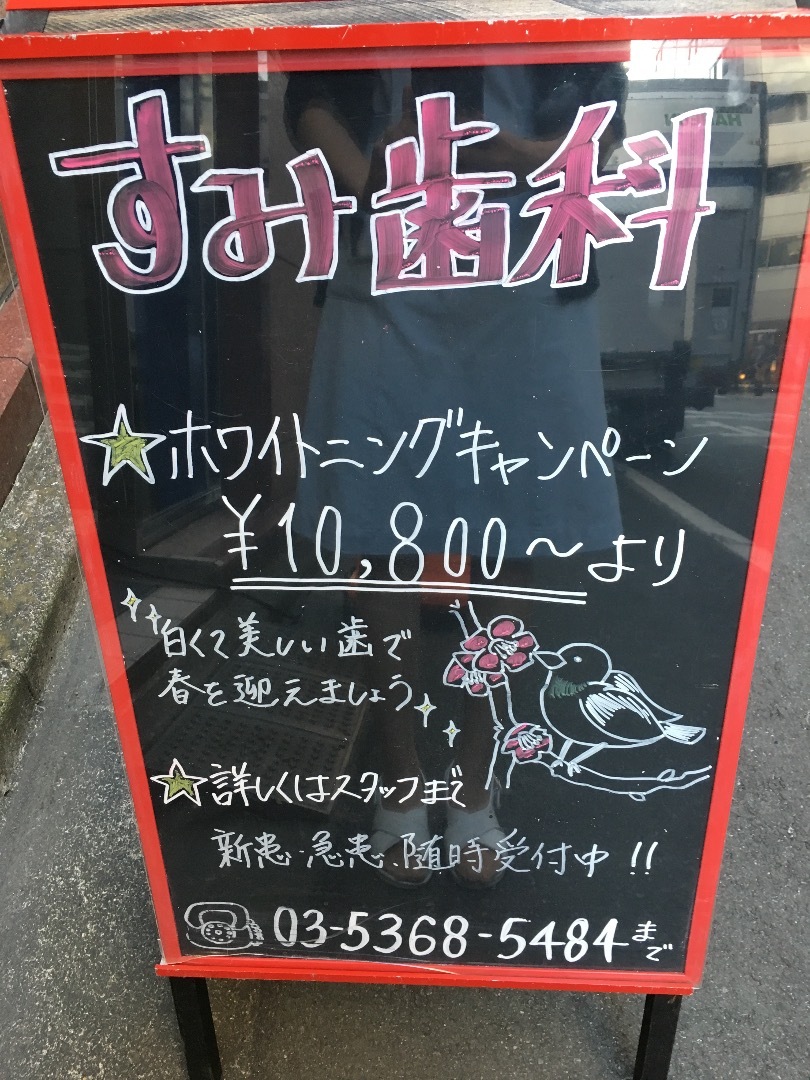 すみ歯科
☆ホワイトニングキャンペーン
¥10,800～より
白くて美しい歯で
春を迎えましょう
☆詳しくはスタッフまで
新患・急患・随時受付中!!
03-5368-5484まで